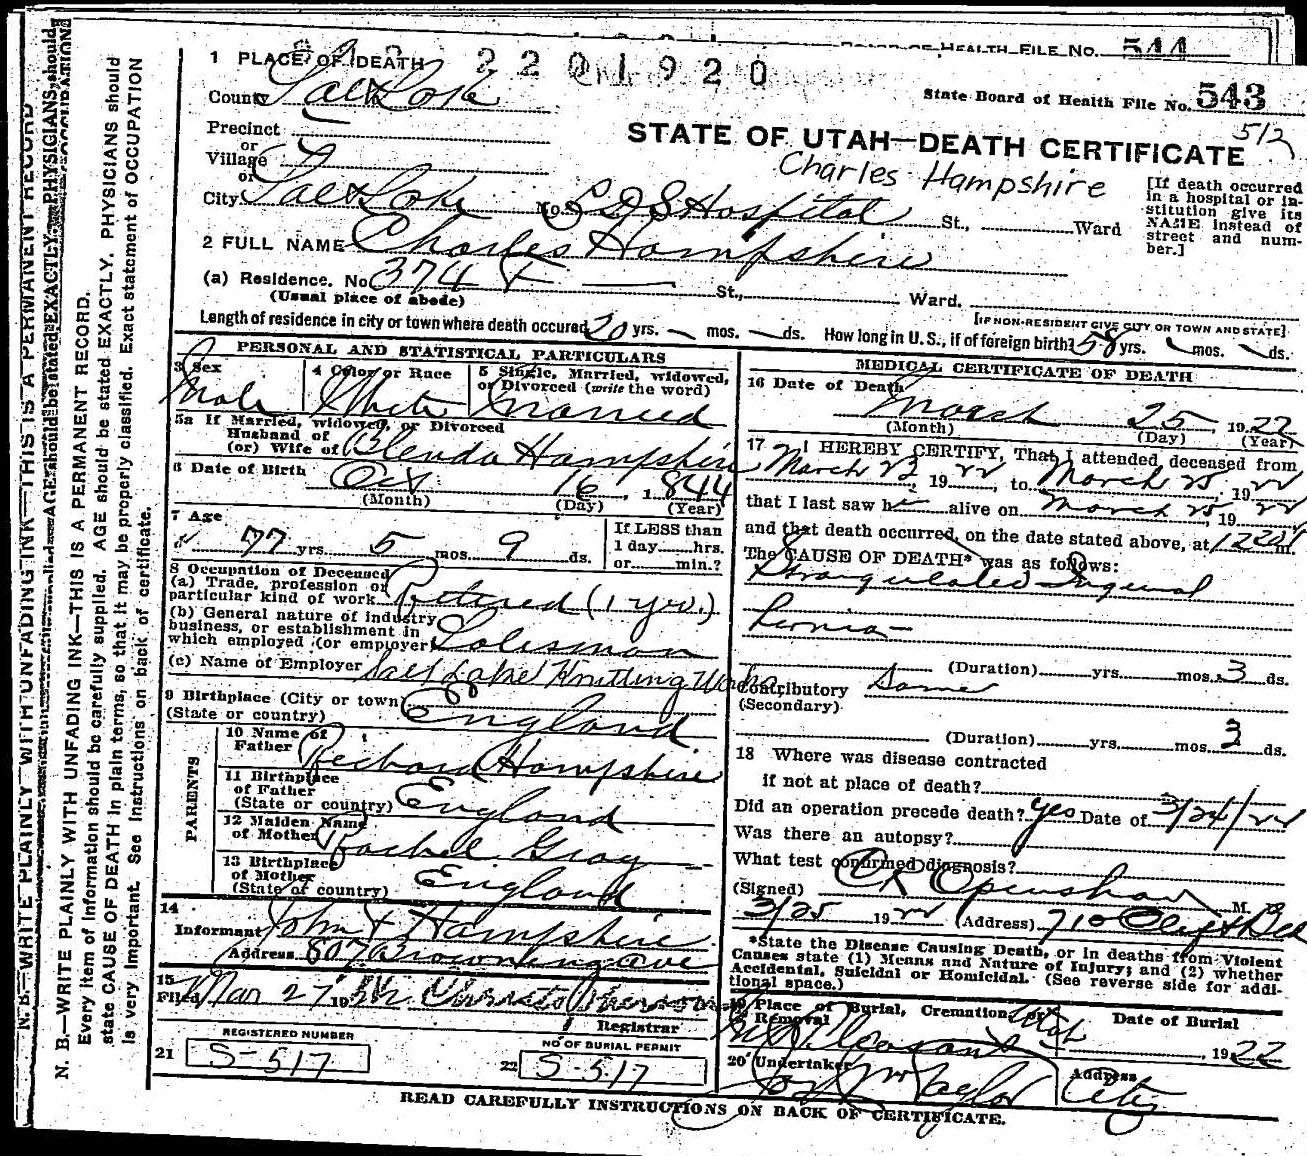 BOARD OF HEALTH FILE NO. 544
2 2 0 1 9 2 0
State Board of Health File No. 543
512
STATE OF UTAH—DEATH CERTIFICATE
Charles Hampshire
1 PLACE OF DEATH
County Salt Lake
Precinct
or
Village
or
City Salt Lake No. L D S Hospital St., Ward
[If death occurred in a hospital or institution give its NAME instead of street and number.]
2 FULL NAME Charles Hampshire
(a) Residence. No. 374 F St., Ward.
(Usual place of abode)
[IF NON-RESIDENT GIVE CITY OR TOWN AND STATE]
Length of residence in city or town where death occured 20 yrs. — mos. — ds. How long in U. S., if of foreign birth? 58 yrs. mos. ds.
PERSONAL AND STATISTICAL PARTICULARS
3 Sex
Male
4 Color or Race
White
5 Single, Married, widowed, or Divorced (write the word)
Married
5a If Married, widowed, or Divorced
Husband of
(or) Wife of Hampshire
6 Date of Birth Oct 16, 1844
(Month) (Day) (Year)
7 Age
77 yrs. 5 mos. 9 ds.
If LESS than
1 day hrs.
or min.?
8 Occupation of Deceased
(a) Trade, profession or
particular kind of work Retired (1 yr.)
(b) General nature of industry,
business, or establishment in
which employed (or employer) Salesman
(c) Name of Employer Salt Lake Knitting Works
9 Birthplace (City or town)
(State or country) England
PARENTS
10 Name of
Father Richard Hampshire
11 Birthplace
of Father
(State or country) England
12 Maiden Name
of Mother Rachel Gray
13 Birthplace
of Mother
(State or country) England
14
Informant John F Hampshire
Address 807 Browning Ave
15
Filed Mar 27 19
Registrar
REGISTERED NUMBER
21 S-517
NO OF BURIAL PERMIT
22 S-517
MEDICAL CERTIFICATE OF DEATH
16 Date of Death
March 25 1922
(Month) (Day) (Year)
17 I HEREBY CERTIFY, That I attended deceased from
March 23, 1922, to March 25, 1922
that I last saw h alive on March 25, 1922
and that death occurred, on the date stated above, at m.
The CAUSE OF DEATH* was as follows:
Strangulated Inguinal
hernia—
(Duration) yrs. mos. 3 ds.
Contributory Same
(Secondary)
(Duration) yrs. mos. 3 ds.
18 Where was disease contracted
if not at place of death?
Did an operation precede death? yes Date of 3/24/22
Was there an autopsy?
What test confirmed diagnosis?
(Signed) Openshaw M. D.
3/25 1922 (Address) 710
*State the Disease Causing Death, or in deaths from Violent
Causes state (1) Means and Nature of Injury; and (2) whether
Accidental, Suicidal or Homicidal. (See reverse side for additional space.)
19 Place of Burial, Cremation or
Removal Mt Pleasant Utah
Date of Burial
, 1922
20 Undertaker
Taylor
Address
City
READ CAREFULLY INSTRUCTIONS ON BACK OF CERTIFICATE.
N. B.—WRITE PLAINLY WITH UNFADING INK—THIS IS A PERMANENT RECORD
AGE should be stated EXACTLY. PHYSICIANS should
N. B.—WRITE PLAINLY WITH UNFADING INK—THIS IS A PERMANENT RECORD.
Every item of information should be carefully supplied. AGE should be stated EXACTLY. PHYSICIANS should
state CAUSE OF DEATH in plain terms, so that it may be properly classified. Exact statement of OCCUPATION
is very important. See instructions on back of certificate.